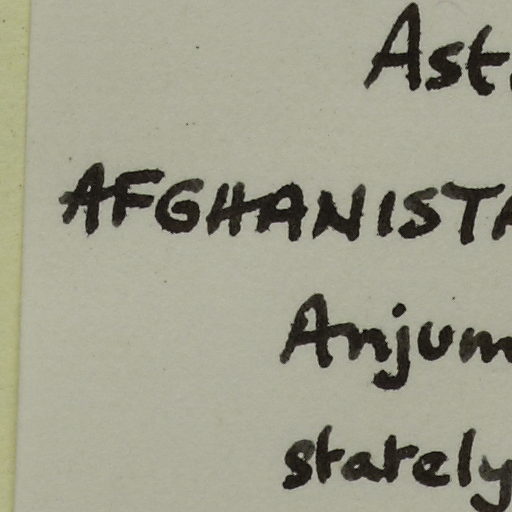 Ast
AFGHANISTA
Anjum
stately